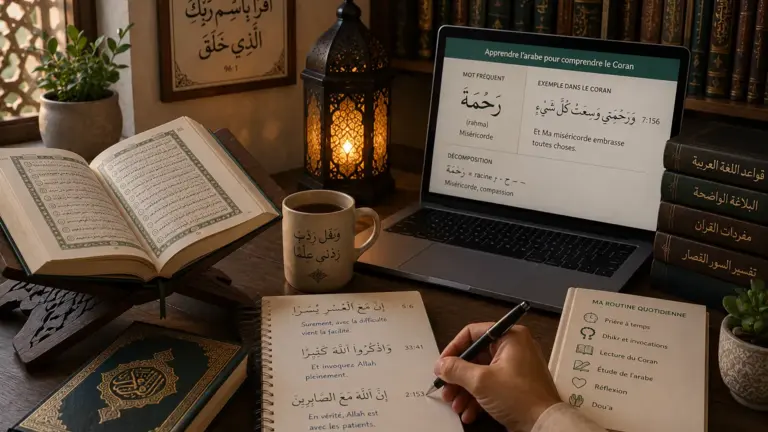 اقْرَأْ بِاسْمِ رَبِّكَ
الَّذِي خَلَقَ
96:1
Apprendre l'arabe pour comprendre le Coran
MOT FRÉQUENT
رَحْمَةَ
(raḥma)
Miséricorde
EXEMPLE DANS LE CORAN
وَرَحْمَتِي وَسِعَتْ كُلَّ شَيْءٍ 7:156
Et Ma miséricorde embrasse
toutes choses.
DÉCOMPOSITION
رَحْمَة + racine ر - ح - م
Miséricorde, compassion
قواعد اللغة العربية
البلاغة الواضحة
مفردات القرآن
تفسير السور القصار
زدني علمًا
إِنَّ مَعَ الْعُسْرِ يُسْرًا 5:6
Surement, avec la difficulté
vient la facilité.
وَاذْكُرُوا اللَّهَ كَثِيرًا 33:41
Et invoquez Allah
pleinement.
إِنَّ اللَّهَ مَعَ الصَّابِرِينَ 2:153
En vérité, Allah est
avec les patients.
MA ROUTINE QUOTIDIENNE
Prière à temps
Dhikr et invocations
Lecture du Coran
Étude de l'arabe
Réflexion
Dou'a